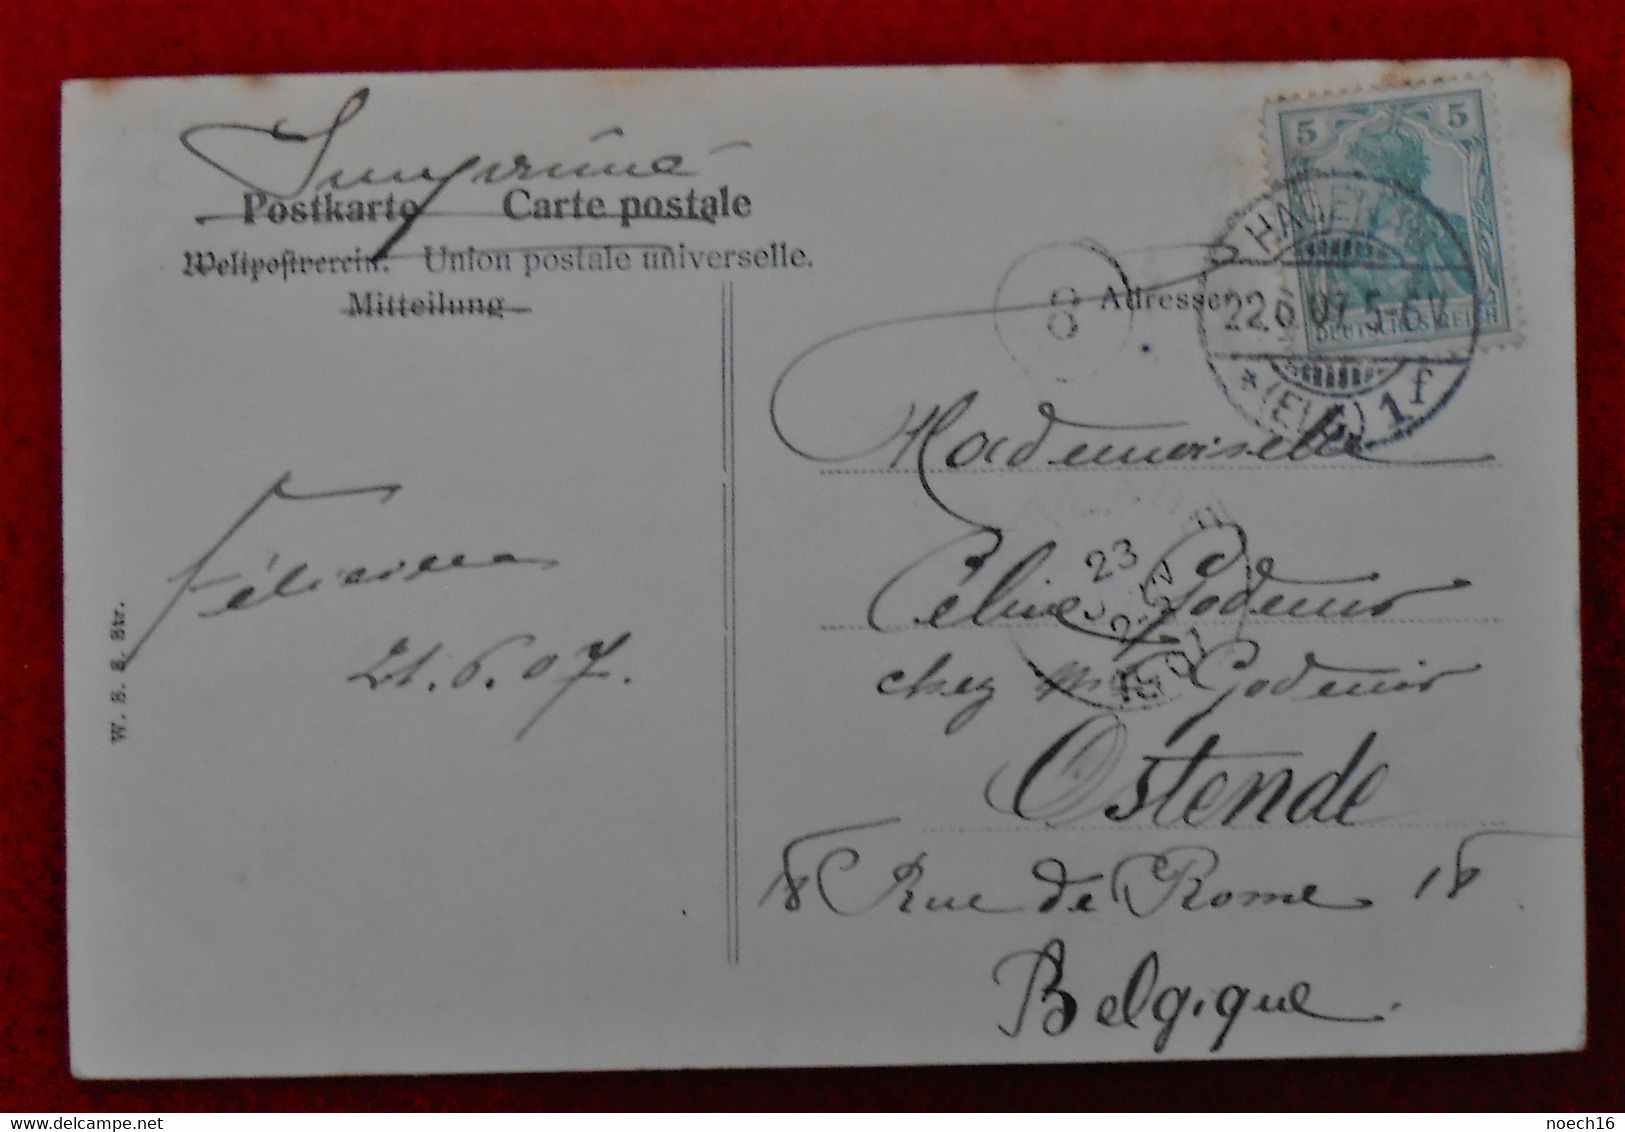 Imprimé
Postkarte Carte postale
Weltpostverein. Union postale universelle.
Mitteilung
Adresse
5 5
DEUTSCHES REICH
HAGEN
22.6.07.5-6V.
* (ELS) 1 f
8
23
07
Mademoiselle
Céline Godenir
chez Godenir
Ostende
18 Rue de Rome 18
Belgique.
21.6.07.
W. S. S. Str.
noech16